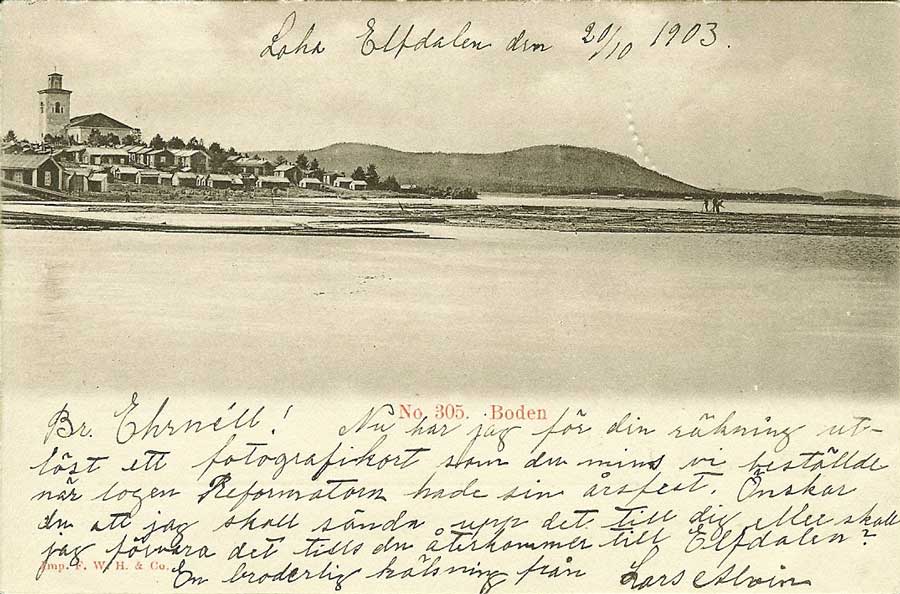 Loka Elfdalen den 20/10 1903.
No. 305. Boden
Br. Ehrnéll! Nu har jag för din räkning ut-
löst ett fotografikort som du mins vi beställde
när logen Reformatorn hade sin årsfest. Önskar
du att jag skall sända upp det till dig eller skall
jag förvara det tills du återkommer till Elfdalen?
Imp. F. W. H. & Co.
En broderlig hälsning från Lars Alvin